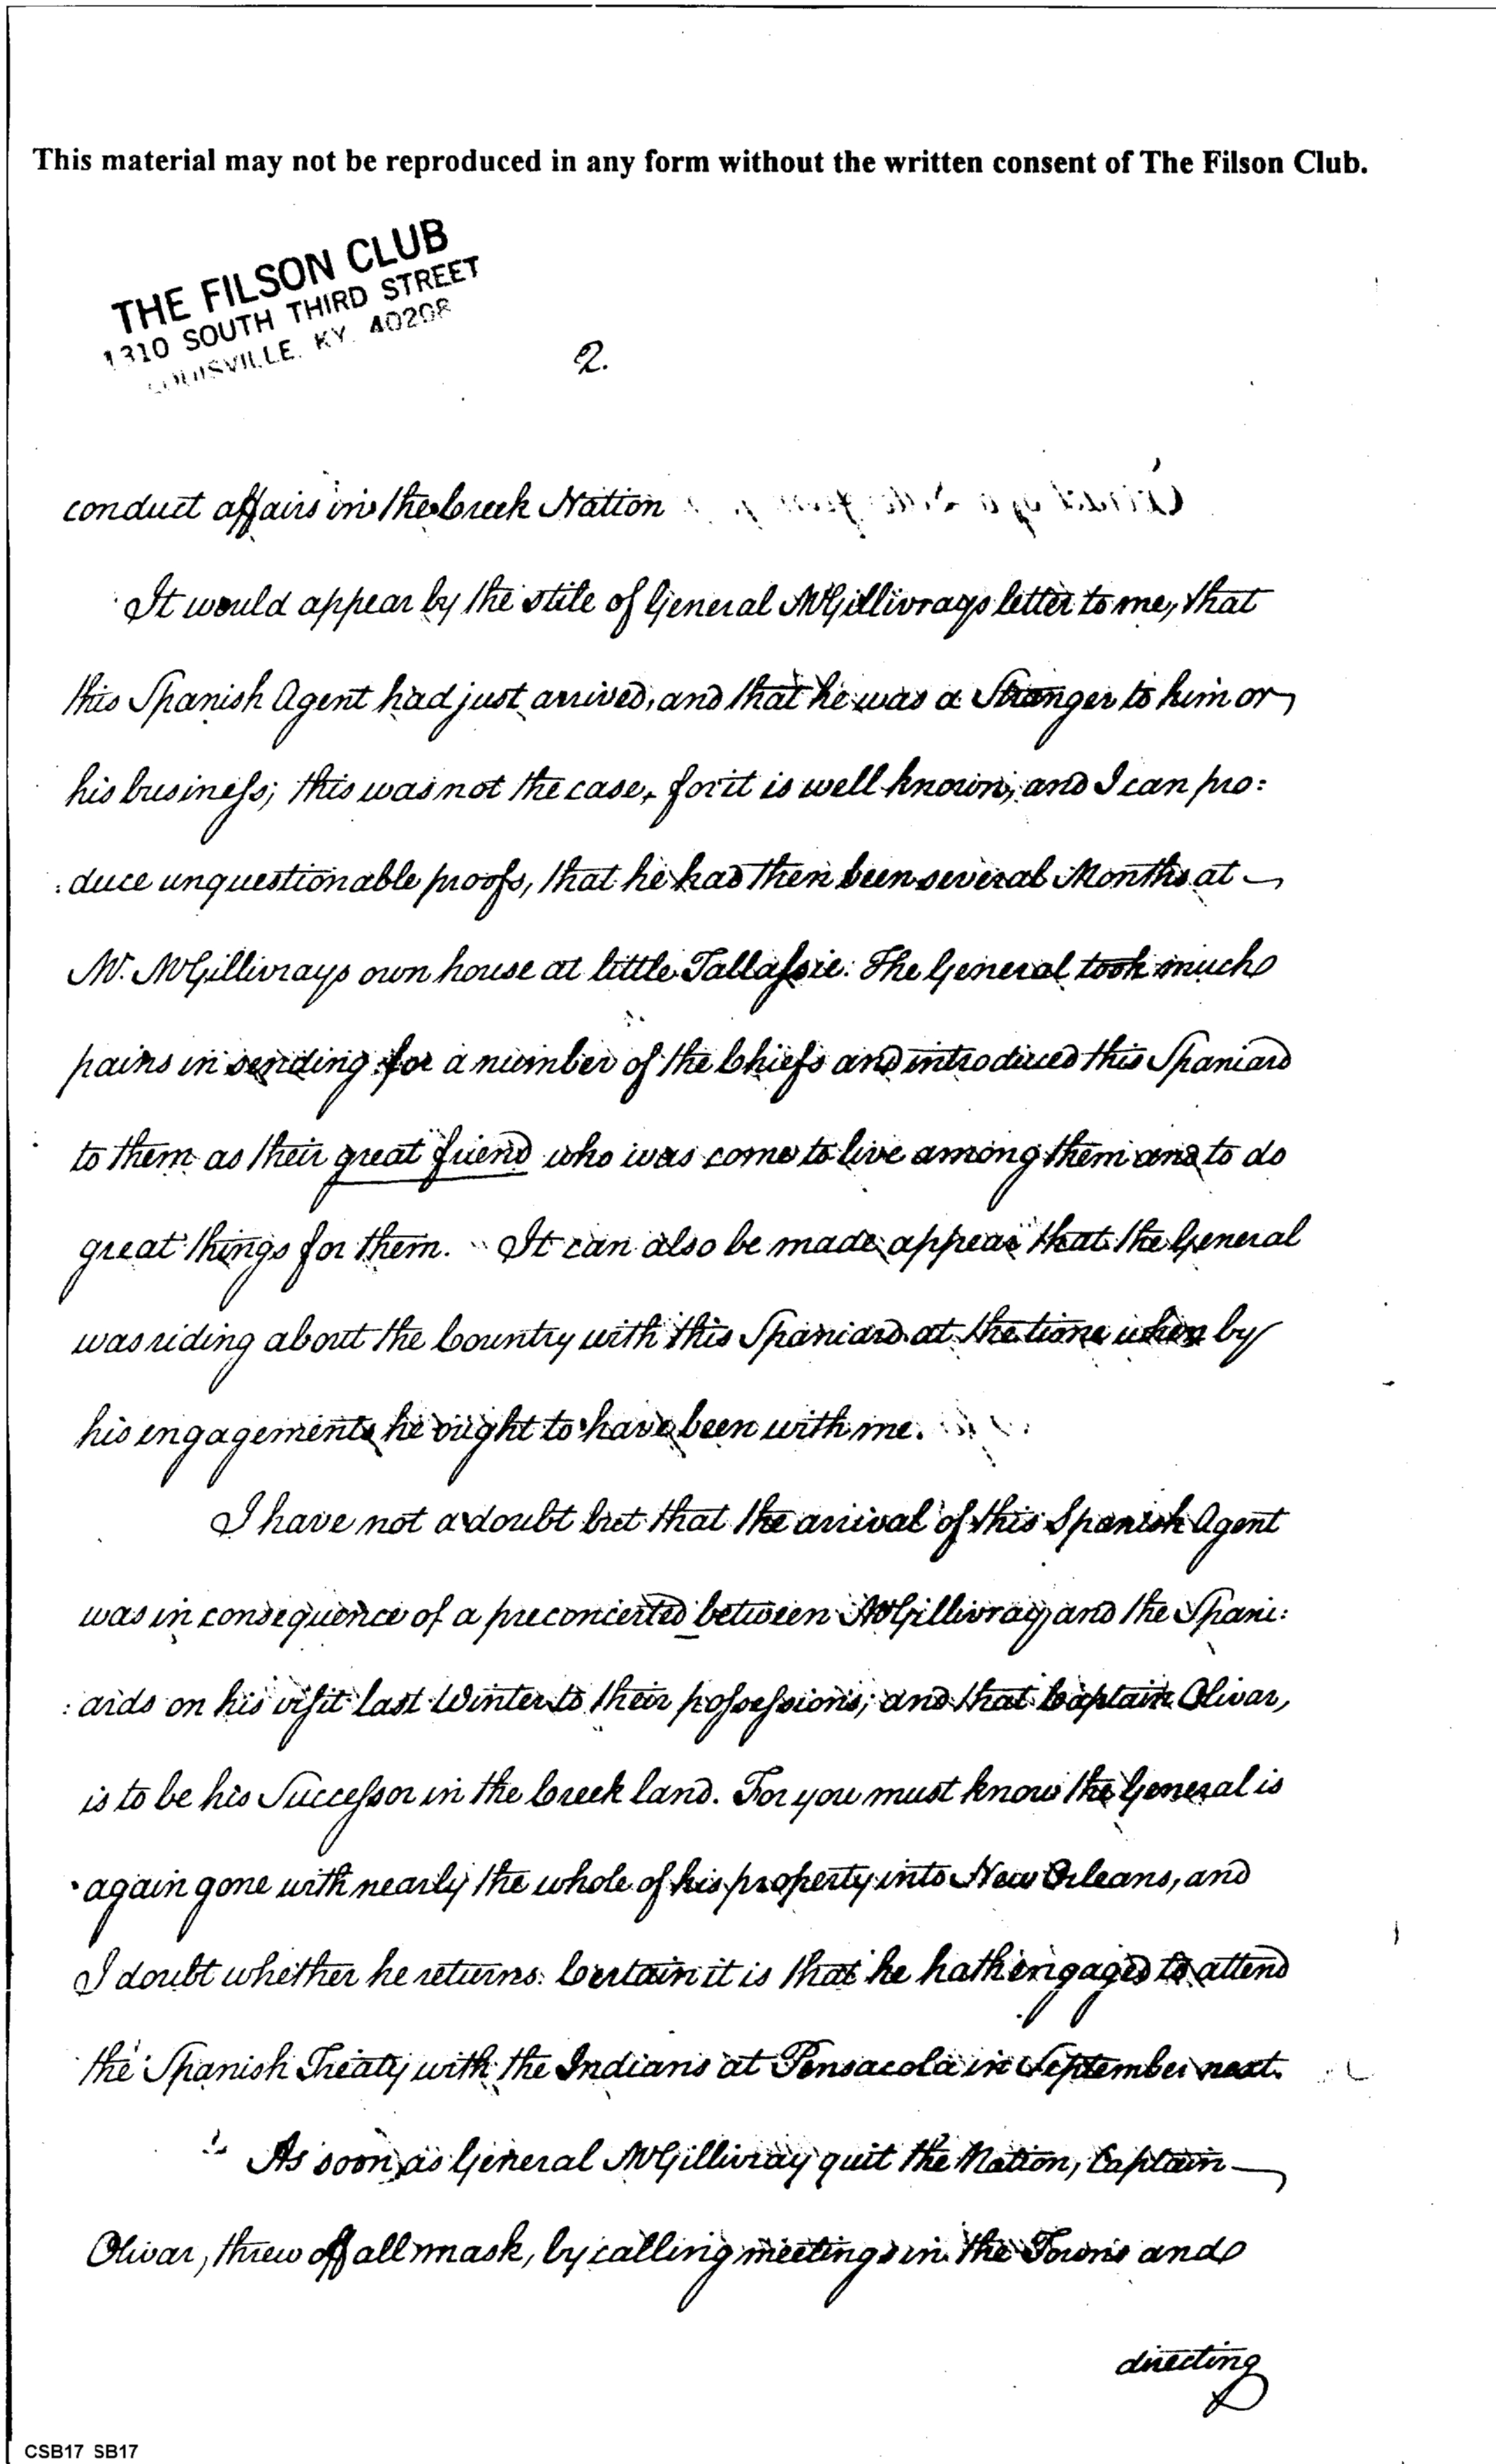 This material may not be reproduced in any form without the written consent of The Filson Club.
THE FILSON CLUB
1310 SOUTH THIRD STREET
LOUISVILLE, KY. 40208
2.
conduct affairs in the Creek Nation
It would appear by the stile of General McGillivrays letter to me, that
this Spanish Agent had just arrived, and that he was a Stranger to him or
his business; this was not the case, for it is well known, and I can pro:
:duce unquestionable proofs, that he had then been several Months at
Mr. McGillivrays own house at little Tallassie: The General took much
pains in sending for a number of the Chiefs and introduced this Spaniard
to them as their great friend who was come to live among them and to do
great things for them. It can also be made appear that the General
was riding about the Country with this Spaniard at the time when by
his engagements he ought to have been with me.
I have not a doubt but that the arrival of this Spanish Agent
was in consequence of a preconcerted between McGillivray and the Spani:
:ards on his visit last Winter to their possessions; and that Captain Olivar,
is to be his Successor in the Creek land. For you must know the General is
again gone with nearly the whole of his property into New Orleans, and
I doubt whether he returns: Certain it is that he hath engaged to attend
the Spanish Treaty with the Indians at Pensacola in September next.
As soon as General McGillivray quit the Nation, Captain
Olivar, threw off all mask, by calling meetings in the Towns and
directing
CSB17 SB17